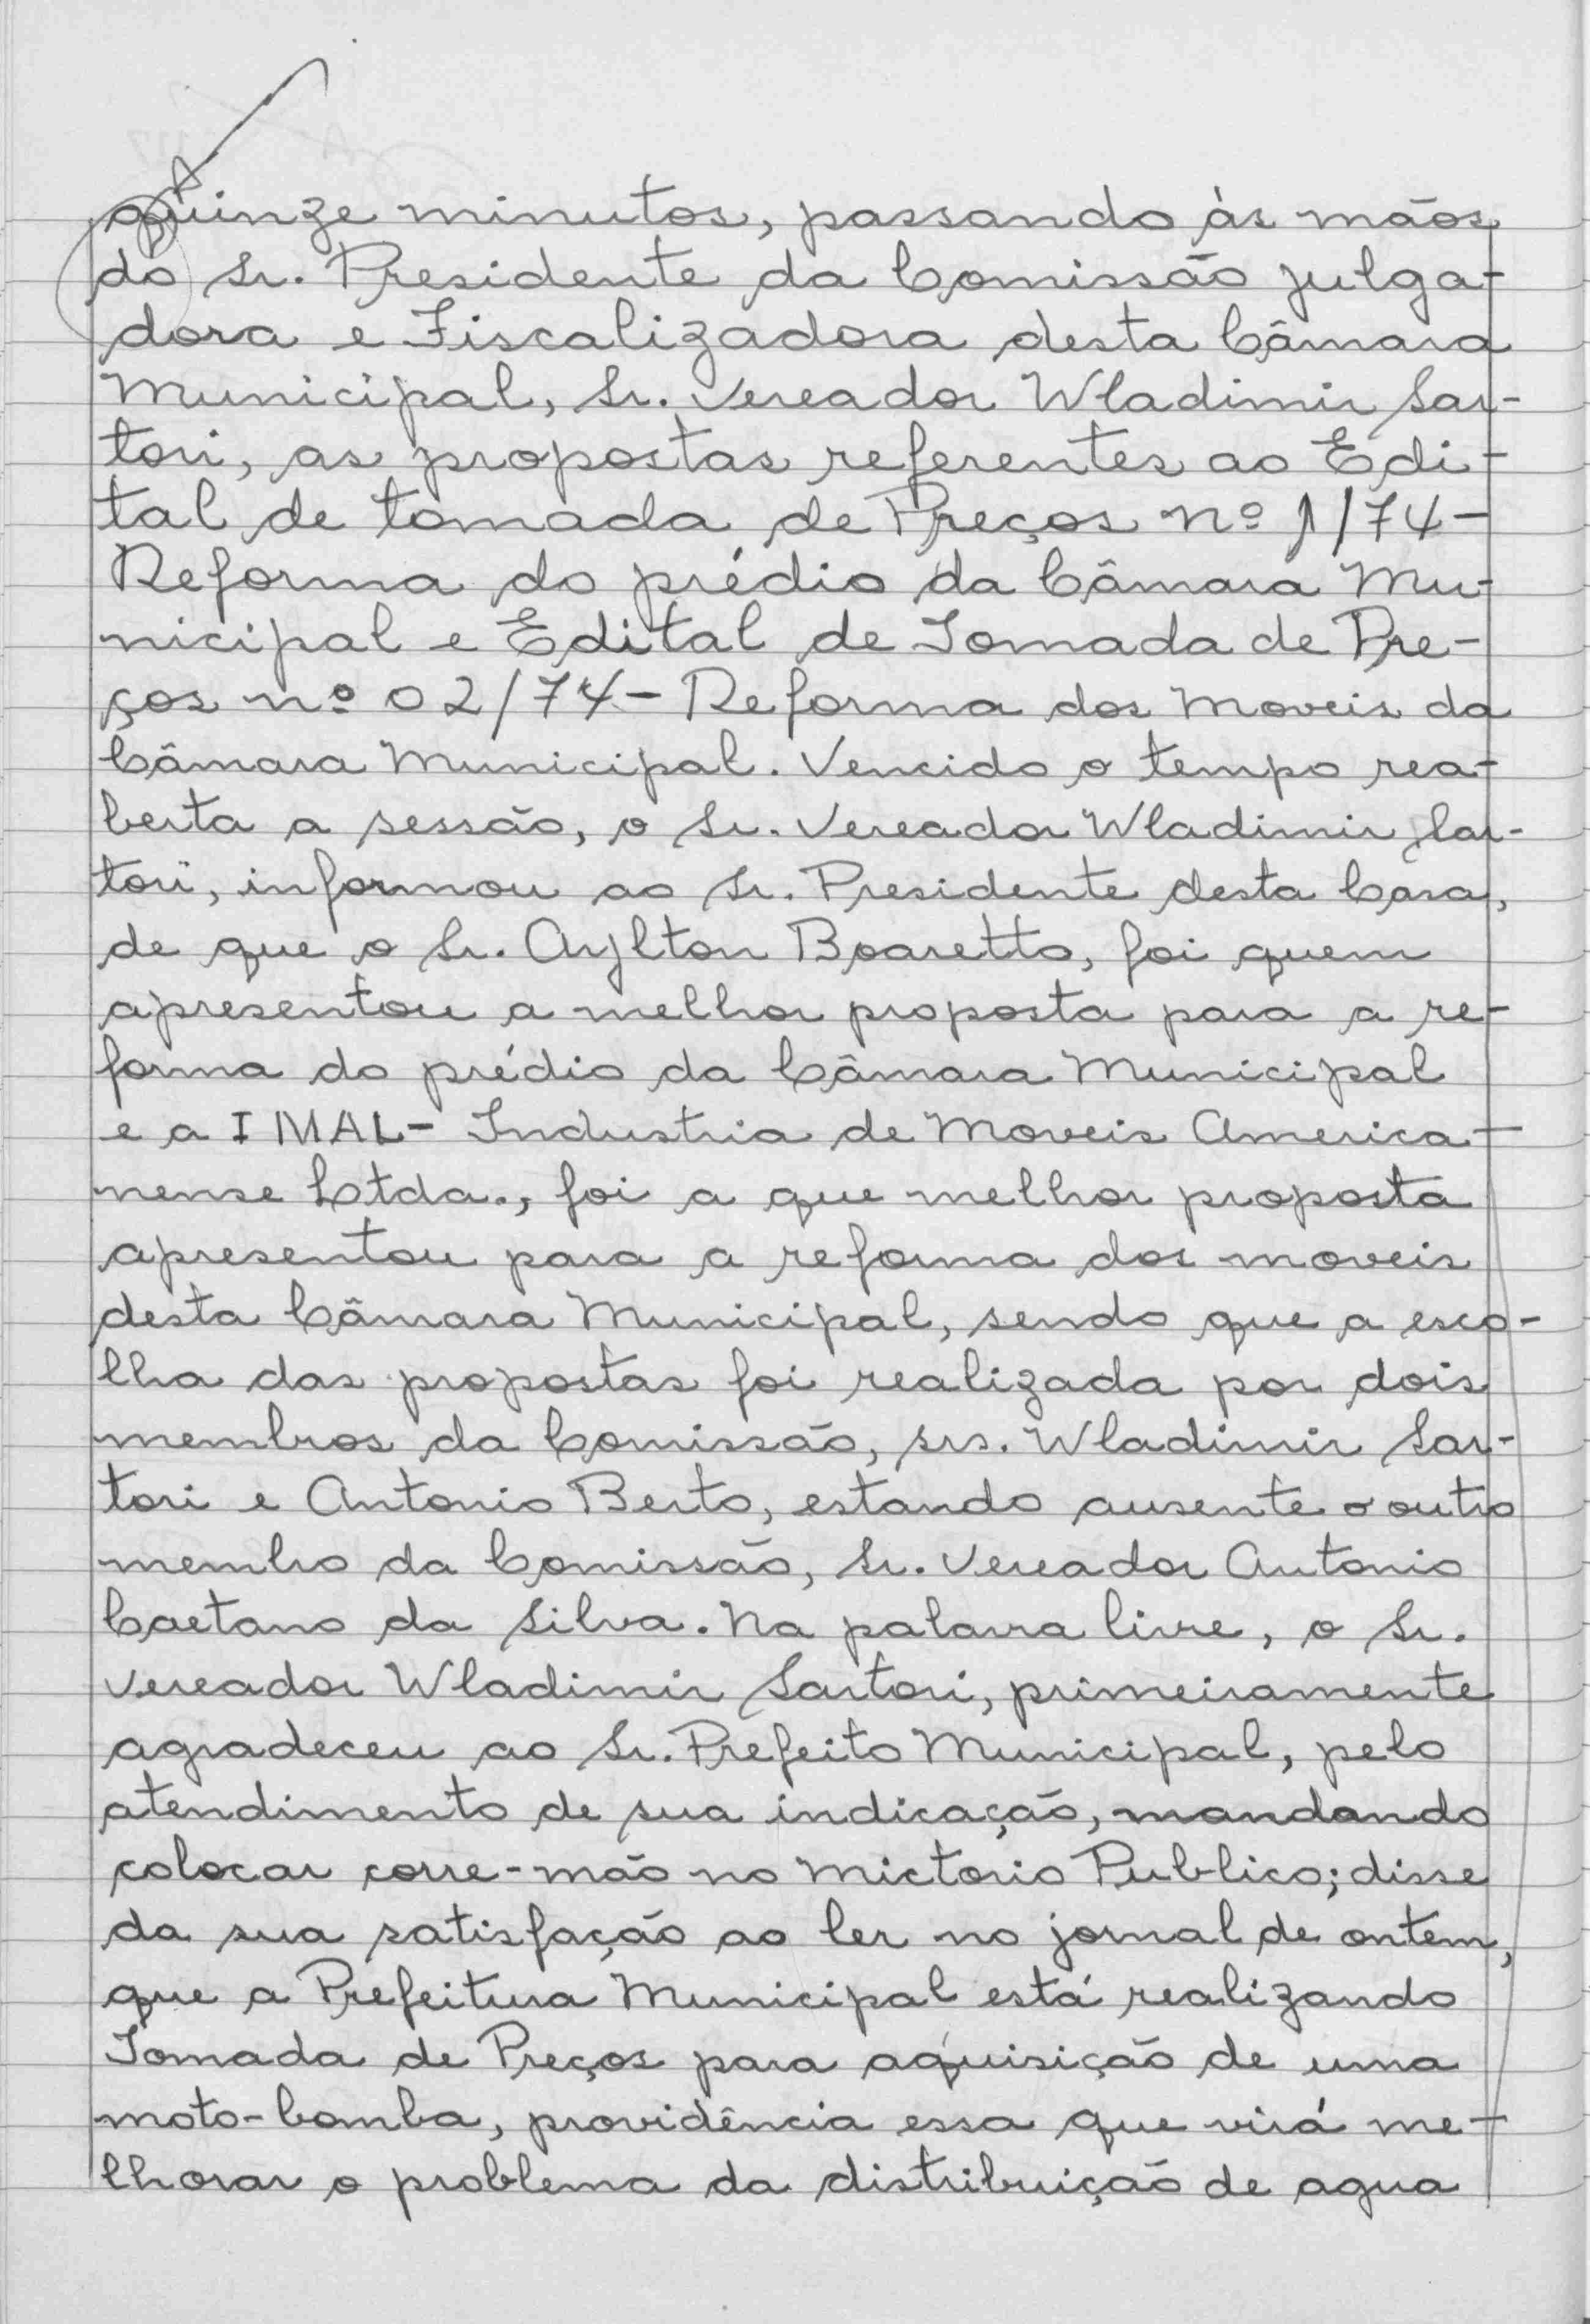 quinze minutos, passando às mãos
do Sr. Presidente da Comissão julga-
dora e Fiscalizadora desta Câmara
Municipal, Sr. Vereador Wladimir Sar-
tori, as propostas referentes ao Edi-
tal de tomada de Preços nº 1/74-
Reforma do prédio da Câmara Mu-
nicipal e Edital de Tomada de Pre-
ços nº 02/74 - Reforma dos Moveis da
Câmara Municipal. Vencido o tempo rea-
berta a sessão, o Sr. Vereador Wladimir Sar-
tori, informou ao Sr. Presidente desta Casa,
de que o Sr. Aylton Boaretto, foi quem
apresentou a melhor proposta para a re-
forma do prédio da Câmara Municipal
e a IMAL - Industria de Moveis America-
nense Ltda., foi a que melhor proposta
apresentou para a reforma dos moveis
desta Câmara Municipal, sendo que a esco-
lha das propostas foi realizada por dois
membros da Comissão, srs. Wladimir Sar-
tori e Antonio Berto, estando ausente o outro
membro da Comissão, Sr. Vereador Antonio
Caetano da Silva. Na palavra livre, o Sr.
Vereador Wladimir Sartori, primeiramente
agradeceu ao Sr. Prefeito Municipal, pelo
atendimento de sua indicação, mandando
colocar corre-mão no Mictorio Publico; disse
da sua satisfação ao ler no jornal de ontem,
que a Prefeitura Municipal está realizando
Tomada de Preços para aquisição de uma
moto-bomba, providência essa que virá me-
lhorar o problema da distribuição de agua